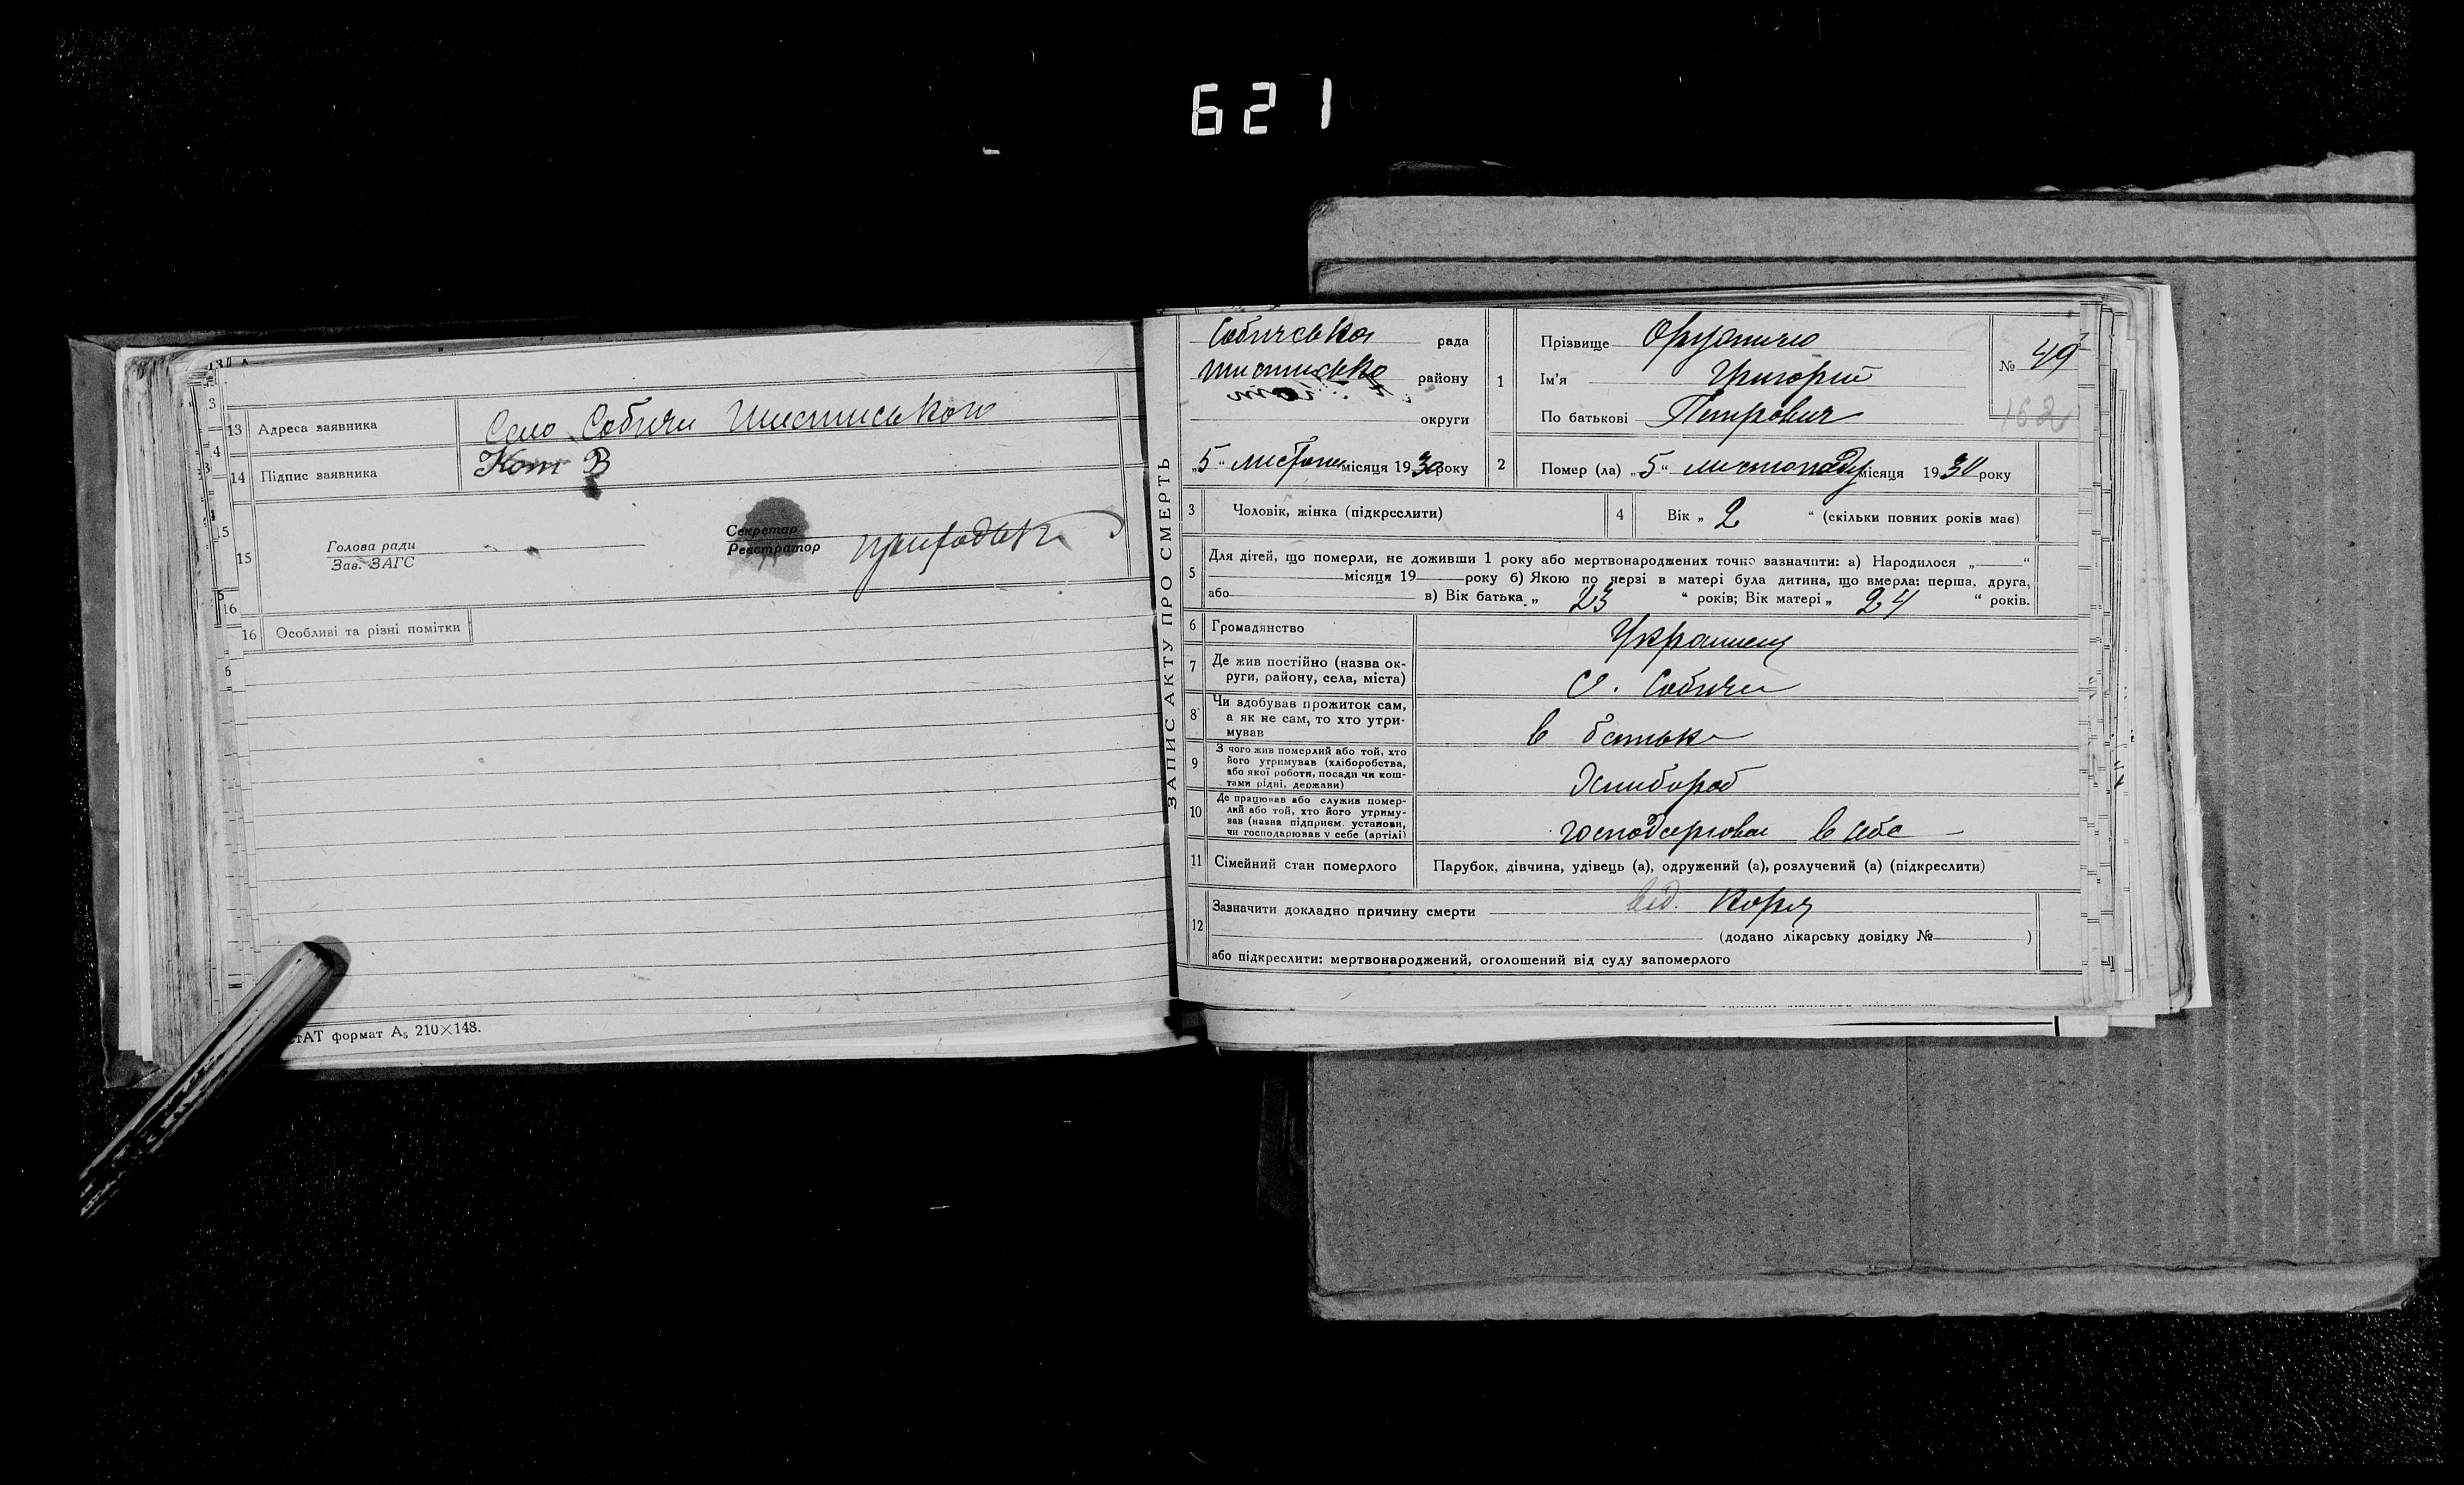 621
13 Адреса заявника Село Собичи Шистиського
14 Підпис заявника Кот В
15 Голова ради
Зав. ЗАГС
Секретар
Реєстратор
16 Особливі та різні помітки
формат А5 210×148.
ЗАПИС АКТУ ПРО СМЕРТЬ
Собичська рада
Шистиська району
округи
„5“ листопа місяця 1930 року
1 Прізвище
Ім'я Григорій
По батькові Петрович
№ 49
162
2 Помер (ла) „5“ листопаду місяця 1930 року
3 Чоловік, жінка (підкреслити)
4 Вік „ 2 “ (скільки повних років має)
5 Для дітей, що померли, не доживши 1 року або мертвонароджених точно зазначити: а) Народилося „ “
місяця 19 року б) Якою по черзі в матері була дитина, що вмерла: перша, друга,
або в) Вік батька „ 23 “ років; Вік матері „ 24 “ років.
6 Громадянство Украинец
7 Де жив постійно (назва ок-
руги, району, села, міста) С. Собичи
8 Чи здобував прожиток сам,
а як не сам, то хто утри-
мував в батька
9 З чого жив померлий або той, хто
його утримував (хліборобства,
або якої роботи, посади чи кош-
тами рідні, держави) Хлибороб
10 Де працював або служив помер-
лий або той, хто його утриму-
вав (назва підприєм. установи,
чи господарював у себе (артілі) господарював в себе
11 Сімейний стан померлого Парубок, дівчина, удівець (а), одружений (а), розлучений (а) (підкреслити)
12 Зазначити докладно причину смерти від. Кору
(додано лікарську довідку № )
або підкреслити: мертвонароджений, оголошений від суду запомерлого